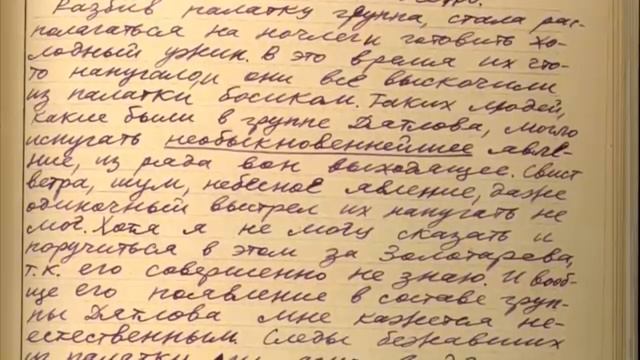 Разбив палатку группа, стала рас-
полагаться на ночлег и готовить хо-
лодный ужин. В это время их что-
то напугало, и они все выскочили
из палатки босиком. Таких людей,
какие были в группе Дятлова, могло
испугать необыкновеннейшее явле-
ние, из ряда вон выходящее. Свист
ветра, шум, небесное явление, даже
одиночный выстрел их напугать не
мог. Хотя я не могу сказать и
поручиться в этом за Золотарева,
т.к. его совершенно не знаю. И вооб-
ще его появление в составе груп-
пы Дятлова мне кажется не-
естественным. Следы бежавших
из палатки